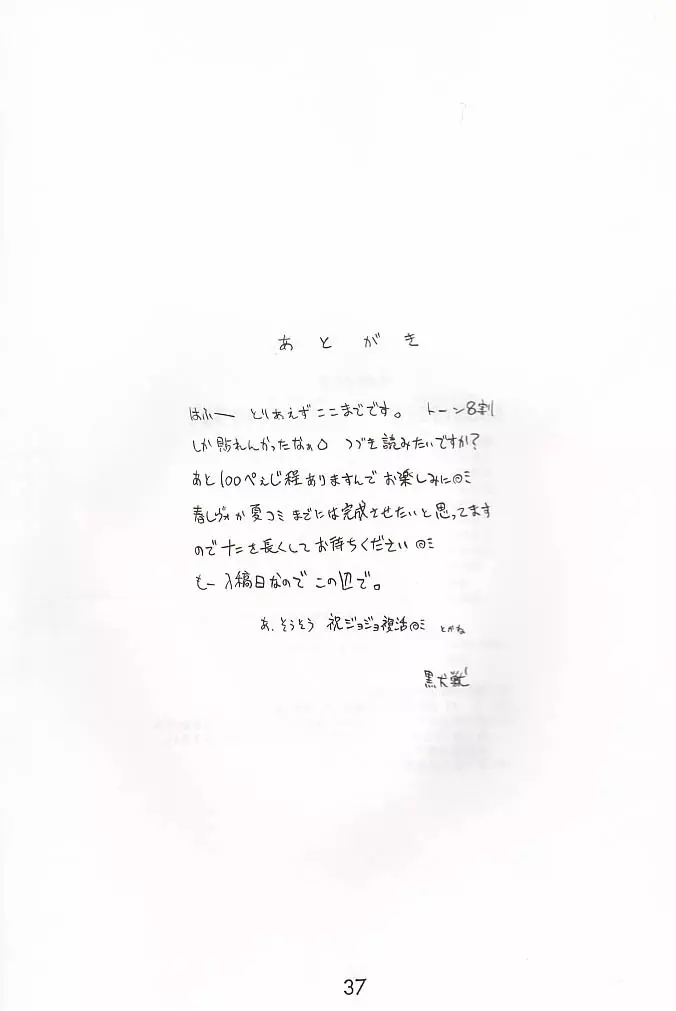 あとがき
はふー とりあえずここまでです。 トーン8割
しか貼れんかったなぁ。 つづき読みたいですか?
あと100ぺぇじ程ありますんでお楽しみに◎ミ
春レヴォか夏コミまでには完成させたいと思ってます
ので 十二を長くしてお待ちください◎ミ
もー入稿日なのでこの辺で。
あ、そうそう 祝ジョジョ復活◎ミ とかね
黒犬獣
37